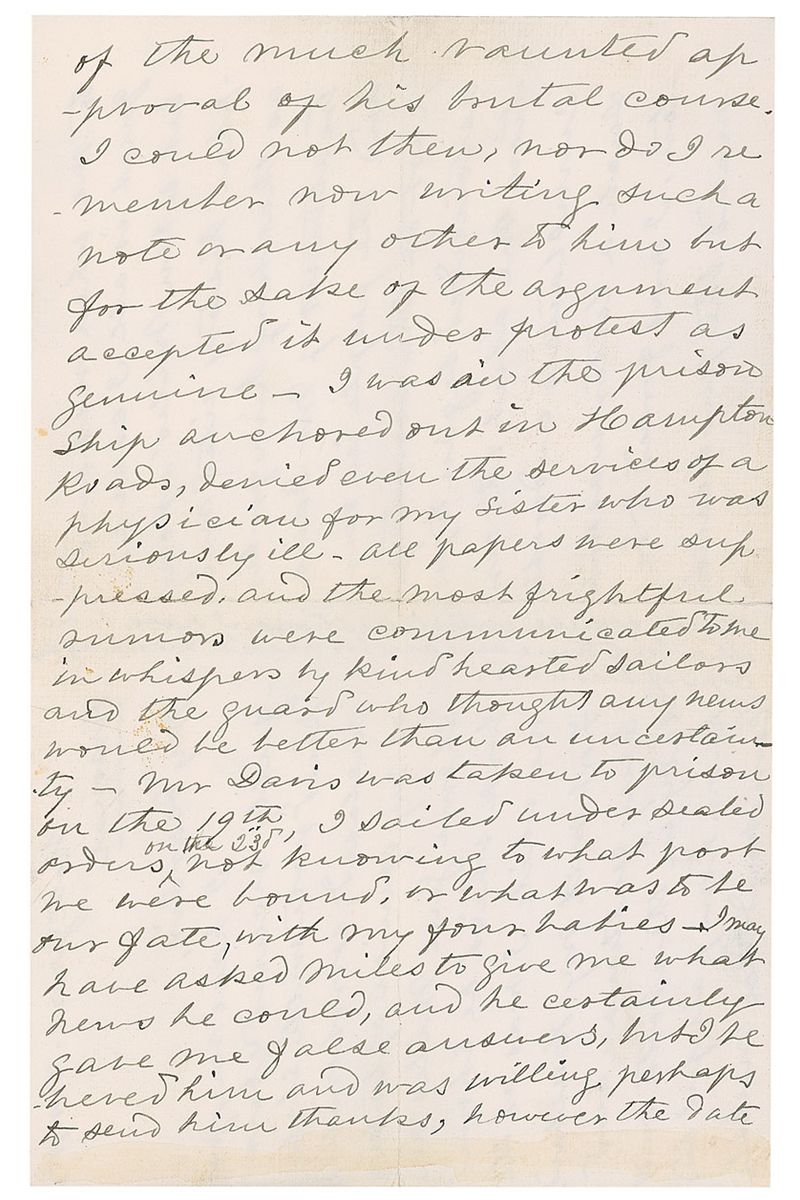 of the much vaunted ap
-proval of his brutal course.
I could not then, nor do I re
-member now writing such a
note or any other to him but
for the sake of the argument
accepted it under protest as
genuine - I was in the prison
ship anchored out in Hampton
Roads, denied even the services of a
physician for my sister who was
seriously ill - all papers were sup
-pressed. and the most frightful
rumors were communicated to me
in whispers by kind hearted sailors
and the guard who thought any news
would be better than an uncertain-
ty - Mr Davis was taken to prison
on the 19th, I sailed under sealed
on the 23d
orders, not knowing to what port
we were bound, or what was to be
our fate, with my four babies - I may
have asked Miles to give me what
news he could, and he certainly
gave me false answers, but I be
-lieved him and was willing perhaps
to send him thanks, however the date